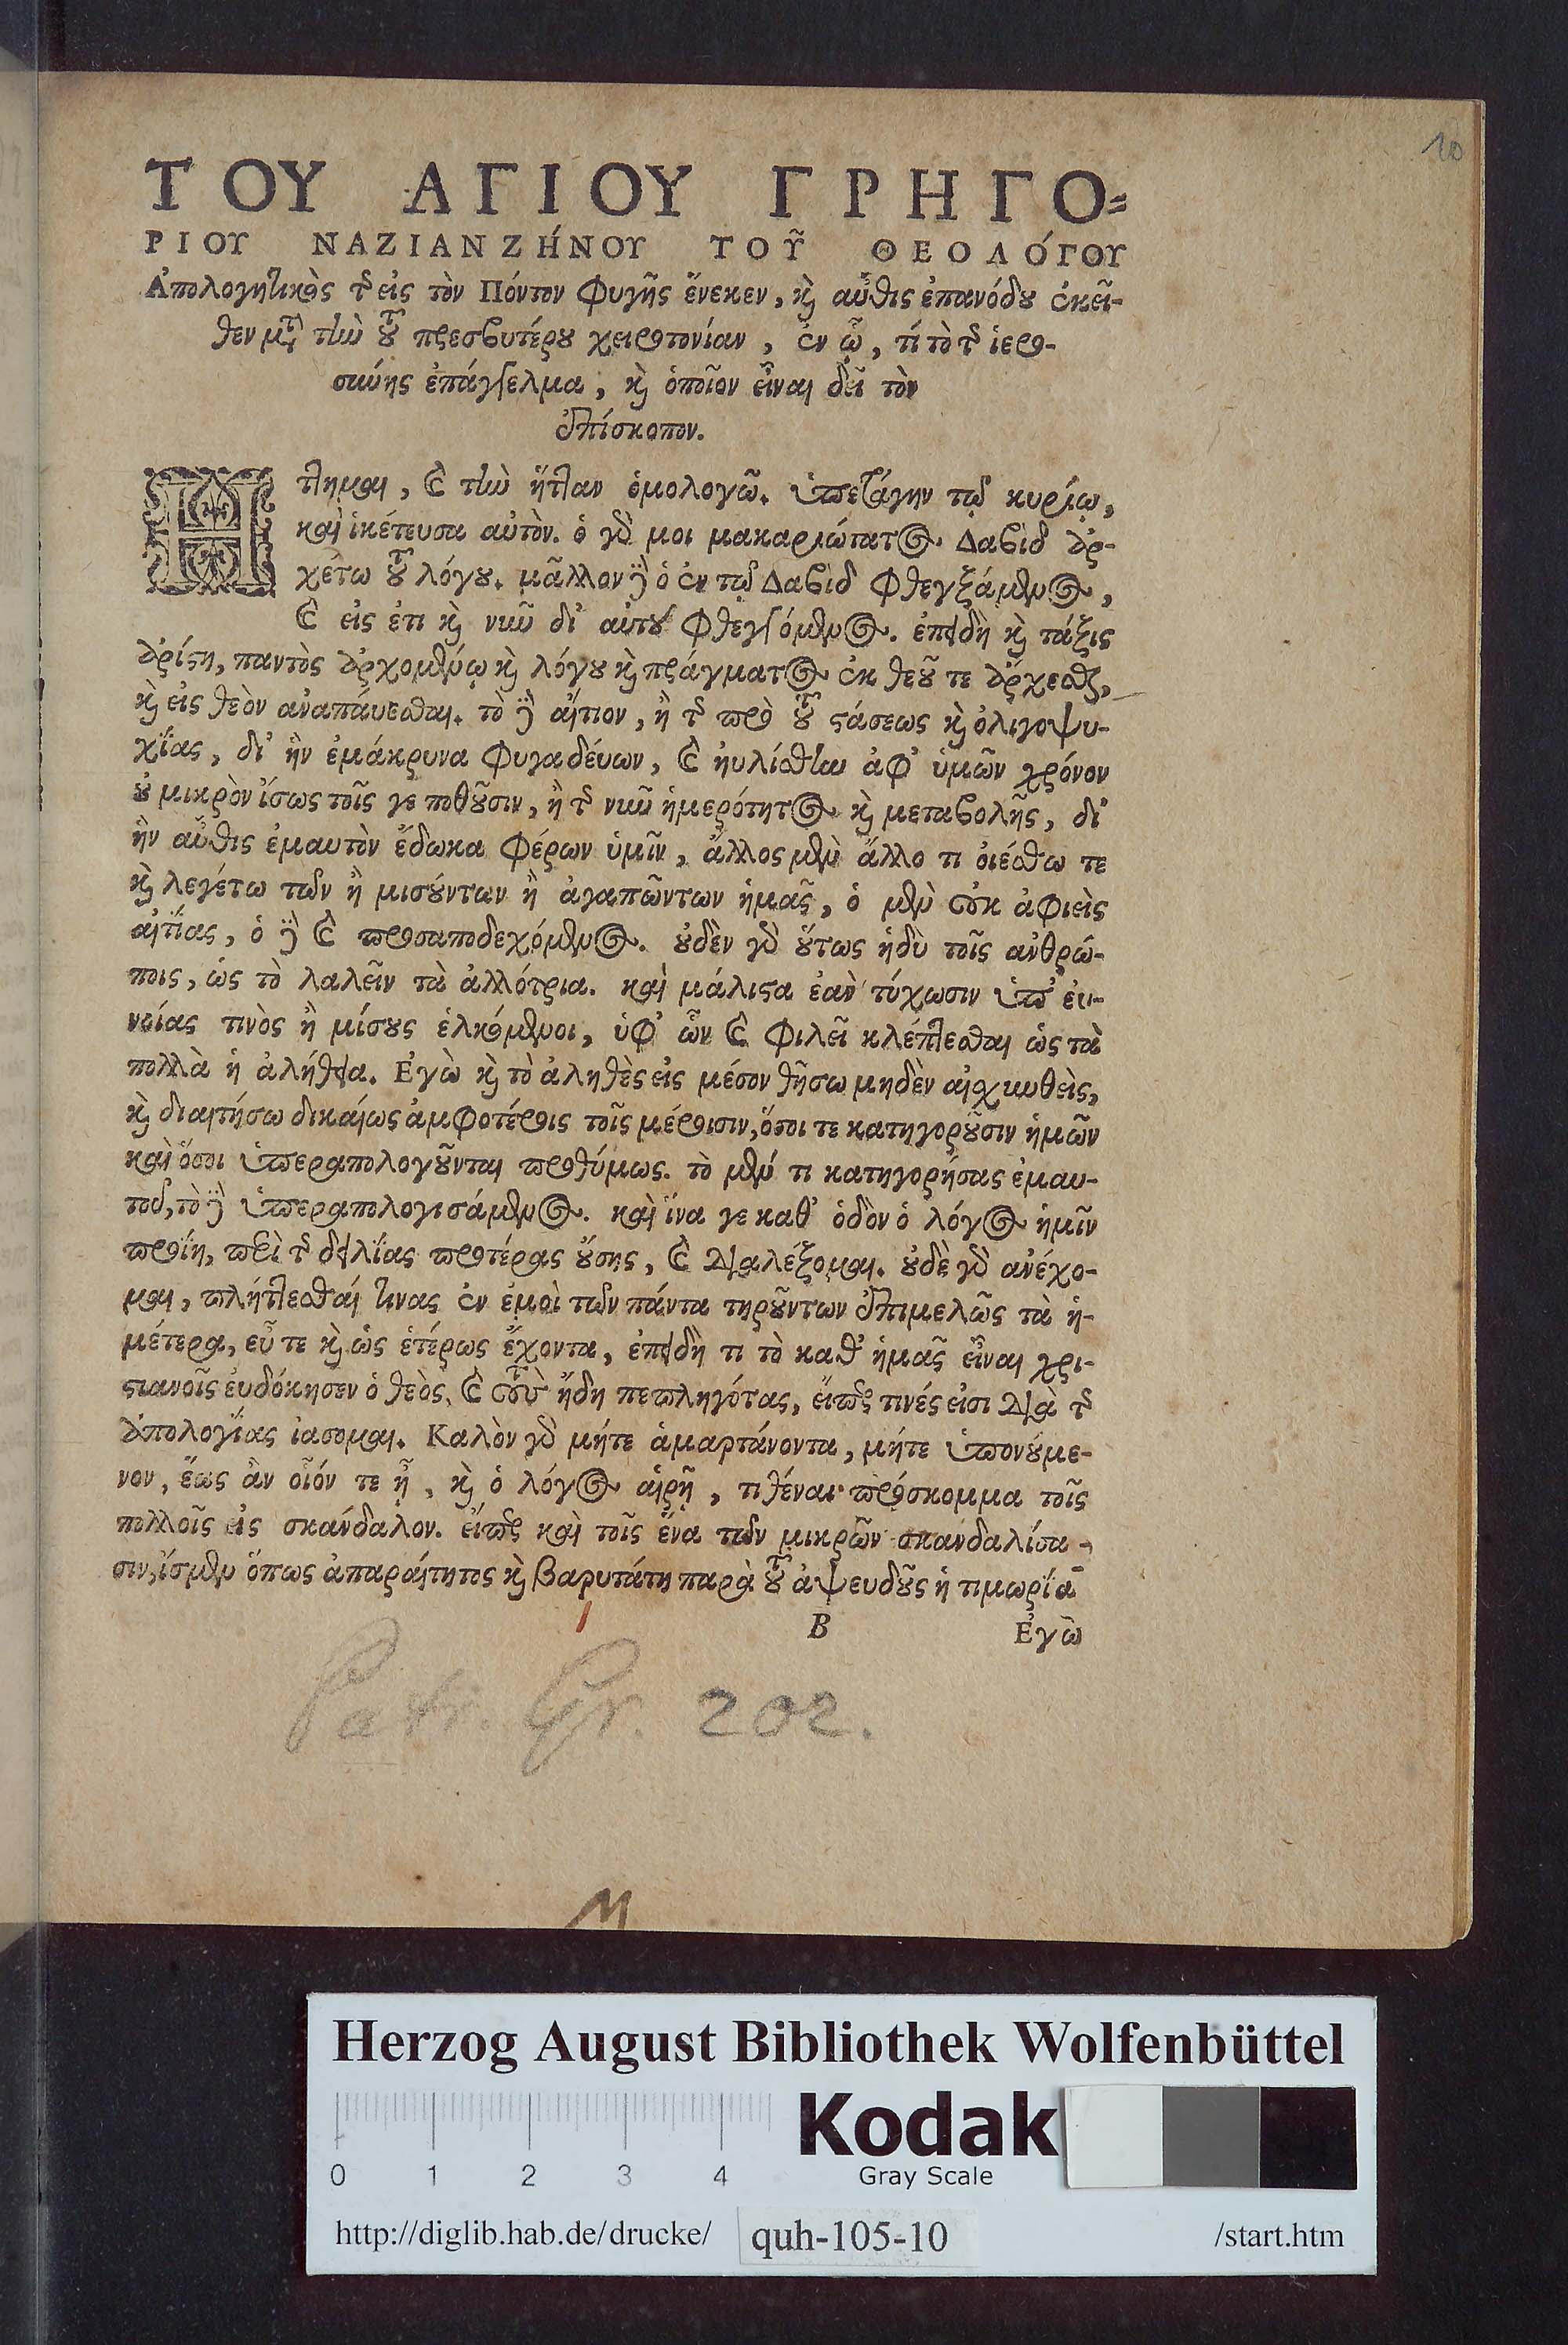 10
ΤΟΥ ΑΓΙΟΥ ΓΡΗΓΟ-
ΡΙΟΥ ΝΑΖΙΑΝΖΉΝΟΥ ΤΟΥ͂ ΘΕΟΛΌΓΟΥ
Ἀπολογητικὸς τῆς εἰς τὸν Πόντον φυγῆς ἕνεκεν, καὶ αὖθις ἐπανόδου ἐκεῖ-
θεν μετὰ τὴν τοῦ πρεσβυτέρου χειροτονίαν, ἐν ᾧ, τί τὸ τῆς ἱερο-
σύνης ἐπάγγελμα, καὶ ὁποῖον εἶναι δεῖ τὸν
ἐπίσκοπον.
Ἥττημαι, καὶ τὴν ἥτταν ὁμολογῶ. ὑπετάγην τῷ κυρίῳ,
καὶ ἱκέτευσα αὐτὸν. ὁ γὰρ μοι μακαριώτατος Δαβὶδ ἀρ-
χέτω τοῦ λόγου. μᾶλλον δὲ ὁ ἐν τῷ Δαβὶδ φθεγξάμενος,
καὶ εἰς ἔτι καὶ νῦν δι' αὐτοῦ φθεγγόμενος. ἐπειδὴ καὶ τάξις
ἀρίστη, παντὸς ἀρχομένῳ καὶ λόγου καὶ πράγματος ἐκ θεοῦ τε ἄρχεσθαι,
καὶ εἰς θεὸν ἀναπαύεσθαι. τὸ δὲ αἴτιον, ἢ τῆς πρὸ τοῦ στάσεως καὶ ὀλιγοψυ-
χίας, δι' ἣν ἐμάκρυνα φυγαδεύων, καὶ ηὐλίσθην ἀφ' ὑμῶν χρόνον
οὐ μικρὸν ἴσως τοῖς γε ποθοῦσιν, ἢ τῆς νῦν ἡμερότητος καὶ μεταβολῆς, δι'
ἣν αὖθις ἐμαυτὸν ἔδωκα φέρων ὑμῖν, ἄλλος μὲν ἄλλο τι οἰέσθω τε
καὶ λεγέτω τῶν ἢ μισούντων ἢ ἀγαπώντων ἡμᾶς, ὁ μὲν οὐκ ἀφιεὶς
αἰτίας, ὁ δὲ καὶ προσαποδεχόμενος. οὐδὲν γὰρ οὕτως ἡδὺ τοῖς ἀνθρώ-
ποις, ὡς τὸ λαλεῖν τὰ ἀλλότρια. καὶ μάλιστα ἐὰν τύχωσιν ὑπ' εὐ-
νοίας τινὸς ἢ μίσους ἑλκόμενοι, ὑφ' ὧν καὶ φιλεῖ κλέπτεσθαι ὡς τὰ
πολλὰ ἡ ἀλήθεια. Ἐγὼ καὶ τὸ ἀληθὲς εἰς μέσον θήσω μηδὲν αἰσχυνθεὶς,
καὶ διαιτήσω δικαίως ἀμφοτέροις τοῖς μέροισιν, ὅσοι τε κατηγοροῦσιν ἡμῶν
καὶ ὅσοι ὑπεραπολογοῦνται προθύμως. τὸ μέν τι κατηγορήσας ἐμαυ-
τοῦ, τὸ δὲ ὑπεραπολογισάμενος. καὶ ἵνα γε καθ' ὁδὸν ὁ λόγος ἡμῖν
προΐῃ, περὶ τῆς δειλίας προτέρας οὔσης, καὶ διαλέξομαι. οὐδὲ γὰρ ἀνέχο-
μαι, πλήττεσθαί τινας ἐν ἐμοὶ τῶν πάντα τηρούντων ἐπιμελῶς τὰ ἡ-
μέτερα, εὖ τε καὶ ὡς ἑτέρως ἔχοντα, ἐπειδὴ τι τὸ καθ' ἡμᾶς εἶναι χρι-
στιανοῖς εὐδόκησεν ὁ θεὸς, καὶ τοὺς ἤδη πεπληγότας, εἴπερ τινές εἰσι διὰ τῆς
ἀπολογίας ἰάσομαι. Καλὸν γὰρ μήτε ἁμαρτάνοντα, μήτε ὑπονούμε-
νον, ἕως ἂν οἷόν τε ᾖ, καὶ ὁ λόγος αἱρῇ, τιθέναι πρόσκομμα τοῖς
πολλοῖς εἰς σκάνδαλον. εἴπερ καὶ τοῖς ἕνα τῶν μικρῶν σκανδαλίσα-
σιν, ἴσμεν ὅπως ἀπαραίτητος καὶ βαρυτάτη παρὰ τοῦ ἀψευδοῦς ἡ τιμωρία
B Ἐγὼ
Patr. Gr. 202.
Herzog August Bibliothek Wolfenbüttel
Kodak
0 1 2 3 4 Gray Scale
http://diglib.hab.de/drucke/ quh-105-10 /start.htm